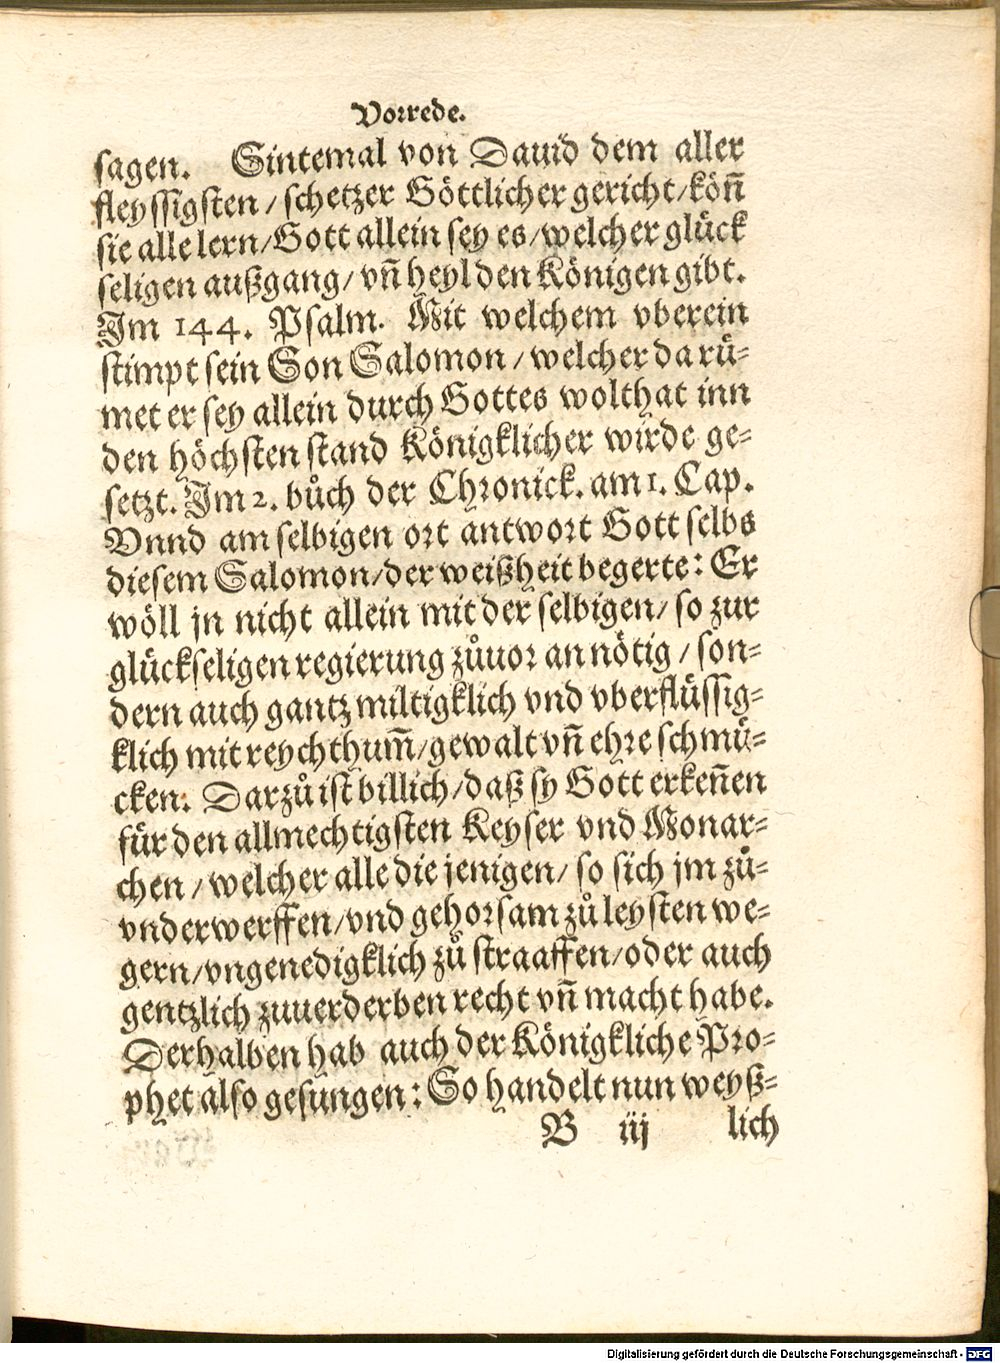 Vorrede.
sagen. Sintemal von Dauid dem aller
fleyssigsten / schetzer Göttlicher gericht / köñ
sie alle lern / Gott allein sey es / welcher glück
seligen außgang / vñ heyl den Königen gibt.
Im 144. Psalm. Mit welchem vberein
stimpt sein Son Salomon / welcher da rü-
met er sey allein durch Gottes wolthat inn
den höchsten stand Königklicher wirde ge-
setzt. Im 2. bůch der Chronick. am 1. Cap.
Vnnd am selbigen ort antwort Gott selbs
diesem Salomon / der weißheit begerte: Er
wöll jn nicht allein mit der selbigen / so zur
glückseligen regierung zůuor an nötig / son-
dern auch gantz miltigklich vnd vberflüssig-
klich mit reychthum̃ / gewalt vñ ehre schmü-
cken. Darzů ist billich / daß sy Gott erkeñen
für den allmechtigsten Keyser vnd Monar-
chen / welcher alle die jenigen / so sich jm zů-
vnderwerffen / vnd gehorsam zů leysten we-
gern / vngenedigklich zů straaffen / oder auch
gentzlich zuuerderben recht vñ macht habe.
Derhalben hab auch der Königkliche Pro-
phet also gesungen: So handelt nun weyß-
B iij lich
Digitalisierung gefördert durch die Deutsche Forschungsgemeinschaft - DFG